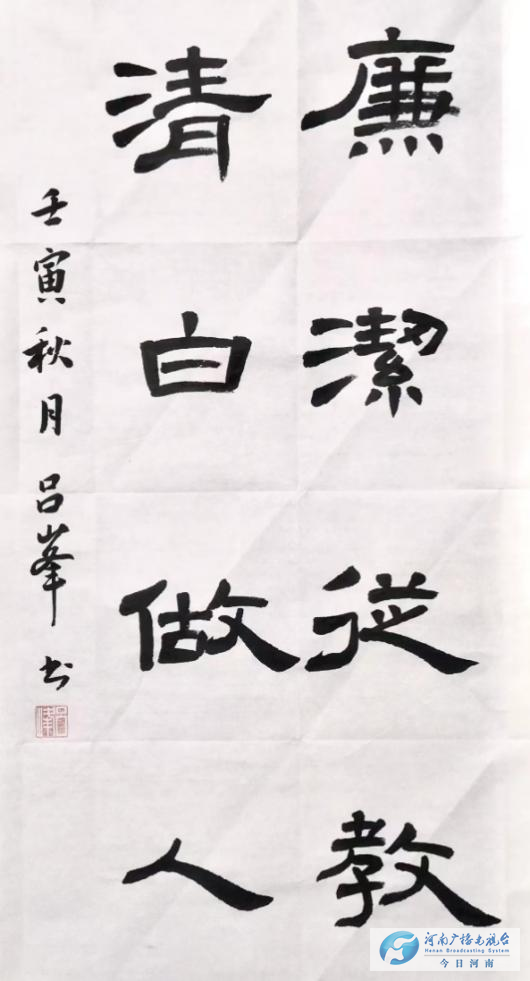 廉潔從教
清白做人
壬寅秋月吕峯书
河南广播电视台
Henan Broadcasting System
今日河南